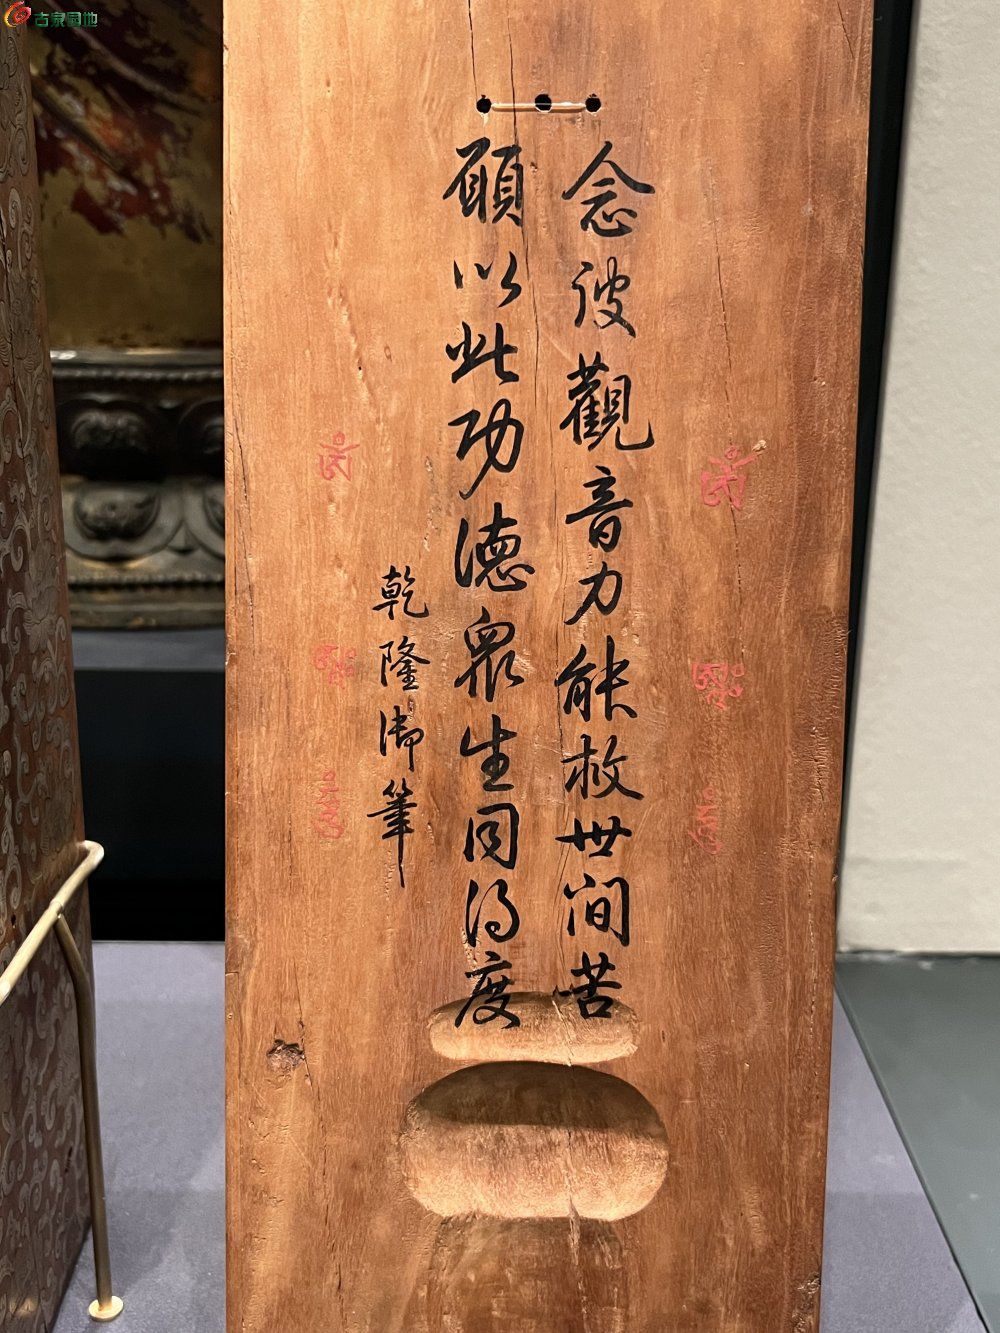 古泉园地
念彼觀音力能救世間苦
願以此功德衆生同得度
乾隆御筆